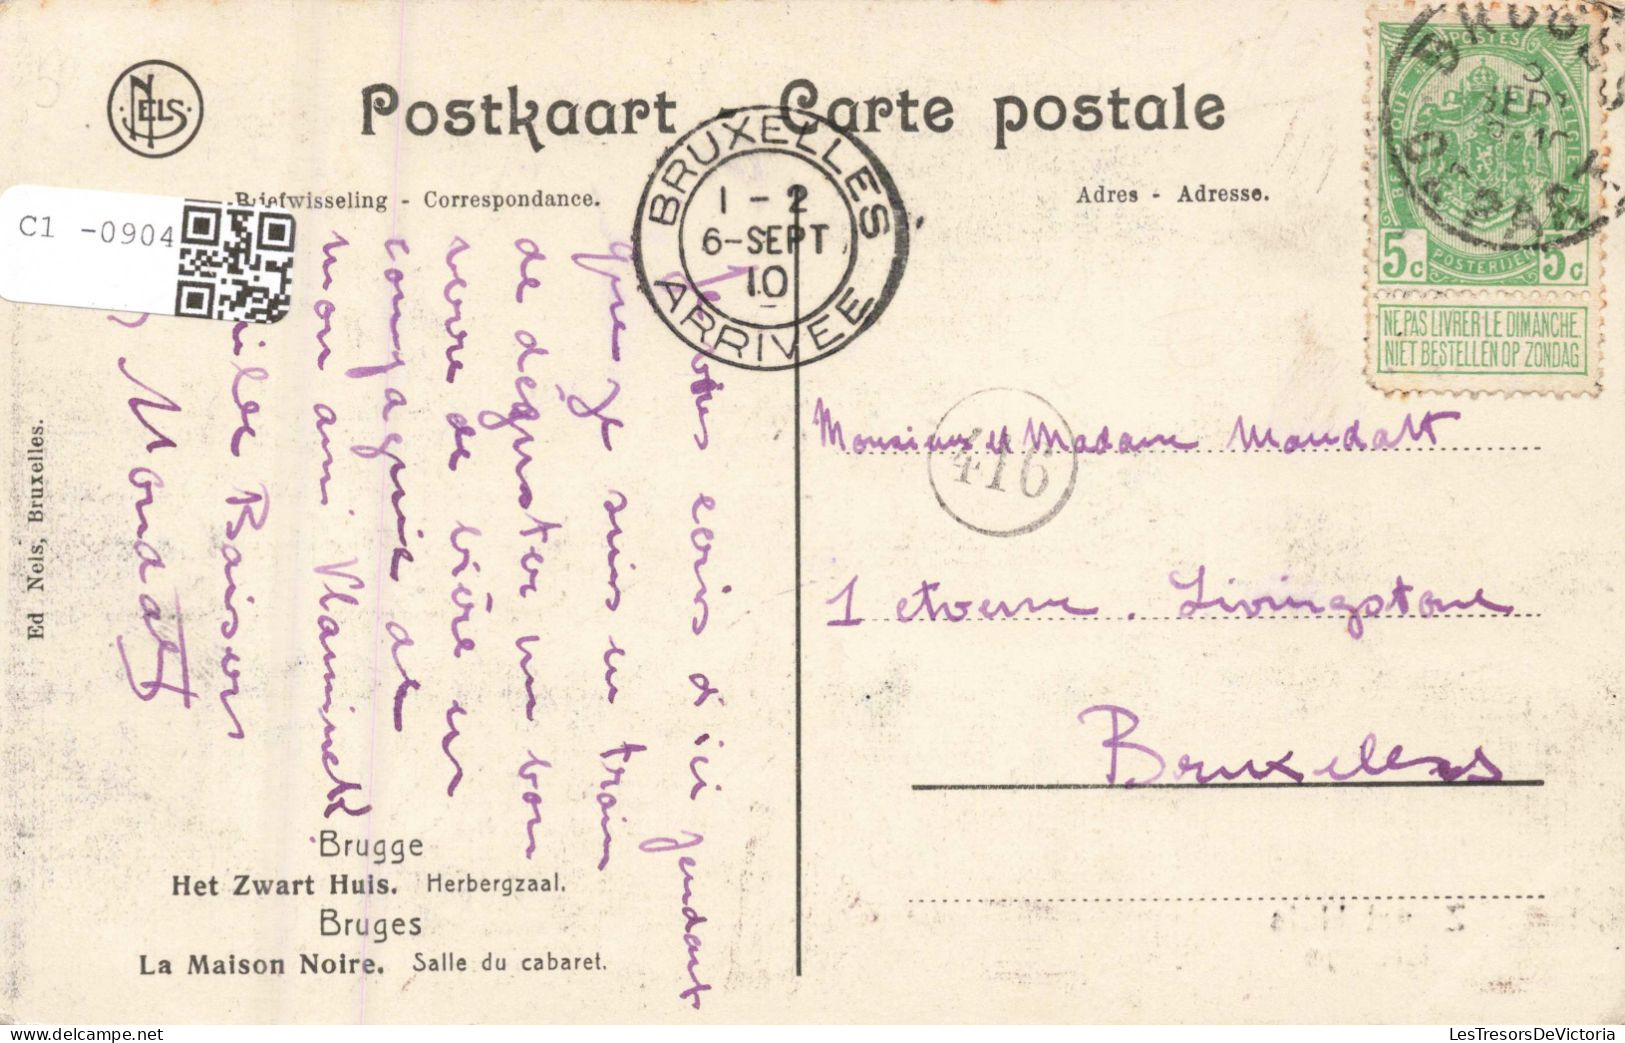 NELS
Postkaart - Carte postale
Briefwisseling - Correspondance.
Adres - Adresse.
C1 -0904
BRUXELLES
1 - 2
6-SEPT
10
ARRIVEE
BRUGES
SEPT
BRUGGE
POSTES
BELGIQUE
BELGIE
5c POSTERIJEN 5c
NE PAS LIVRER LE DIMANCHE.
NIET BESTELLEN OP ZONDAG
416
Je vous écris d'ici pendant
que je suis en train
de déguster un bon
verre de bière en
compagnie de
mon ami Vlaminck
Baisers
Mondatt
Monsieur et Madame Mondatt
1 Livingstone
Bruxelles
Ed Nels, Bruxelles.
Brugge
Het Zwart Huis. Herbergzaal.
Bruges
La Maison Noire. Salle du cabaret.
LesTresorsDeVictoria